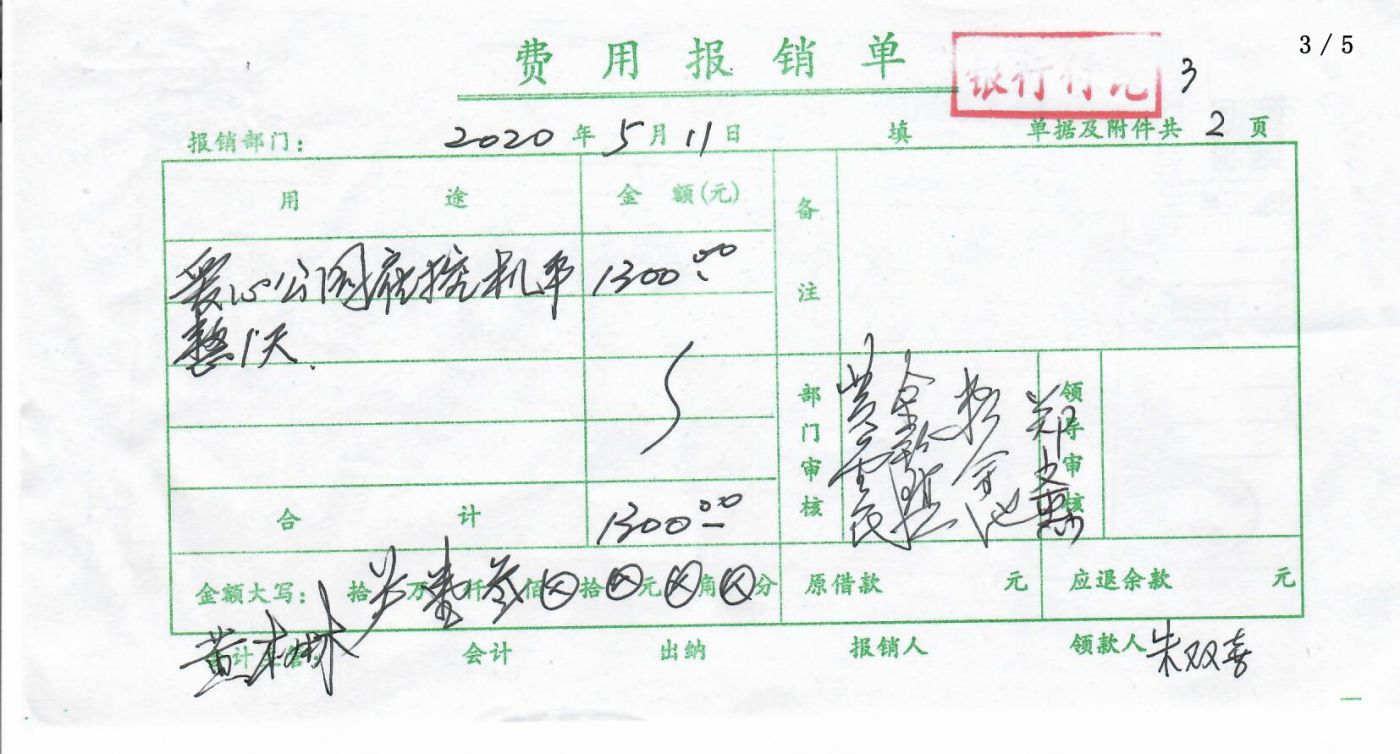 3 / 5
费用报销单
银行付讫
3
报销部门: 2020年5月11日 填 单据及附件共 2 页
用 途 金 额(元) 备注
爱心公园 挖机平 1300.00
整1天.
部门审核 领导审核
合 计 1300.00
金额大写: 拾 万 壹仟 叁佰 拾 元 角 分 原借款 元 应退余款 元
黄 林 会计 出纳 报销人 领款人 朱双喜